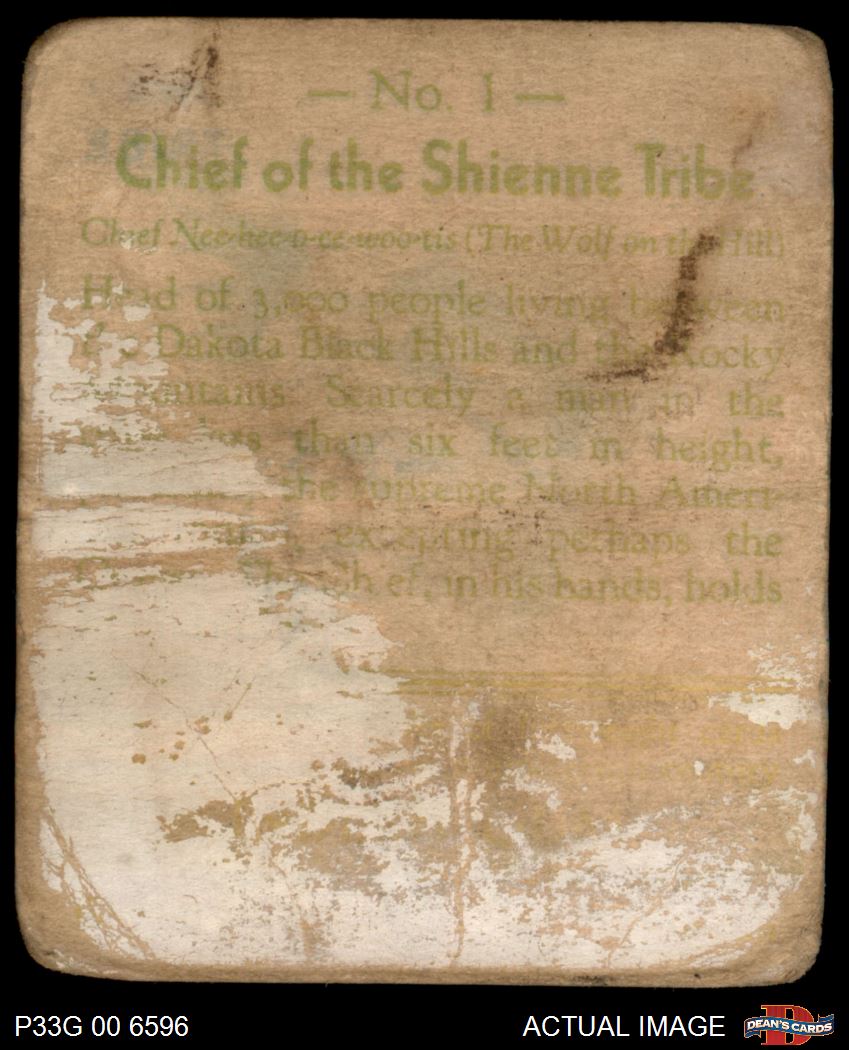 — No. 1 —
Chief of the Shienne Tribe
Chief Nee-hee-o-ee-woo-tis (The Wolf on the Hill)
Head of 3,000 people living between
the Dakota Black Hills and the Rocky
Mountains. Scarcely a man in the
than six feet in height,
the supreme North Ameri-
excepting perhaps the
Chief, in his hands, holds
P33G 00 6596
ACTUAL IMAGE
DEAN'S CARDS